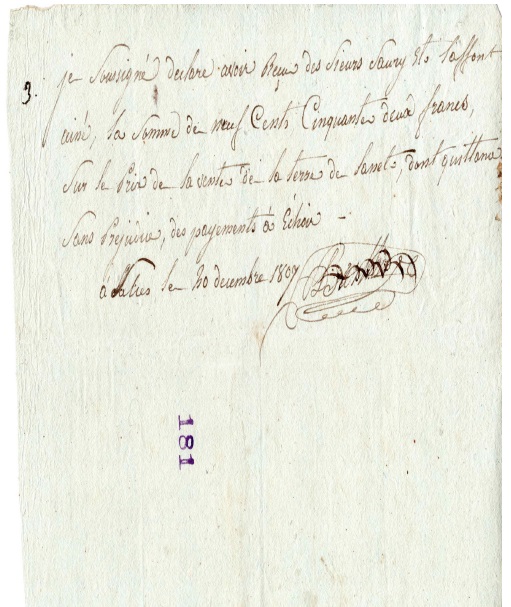 3. je Soussigné declare avoir Reçu des Sieurs Saury Et laffont
ainé, la Somme de neuf Cents Cinquante deux francs,
Sur le Prix de la vente de la terre de lanet, dont quittance
Sans Prejudice, des payements à Echoir
a le 20 decembre 1807
181